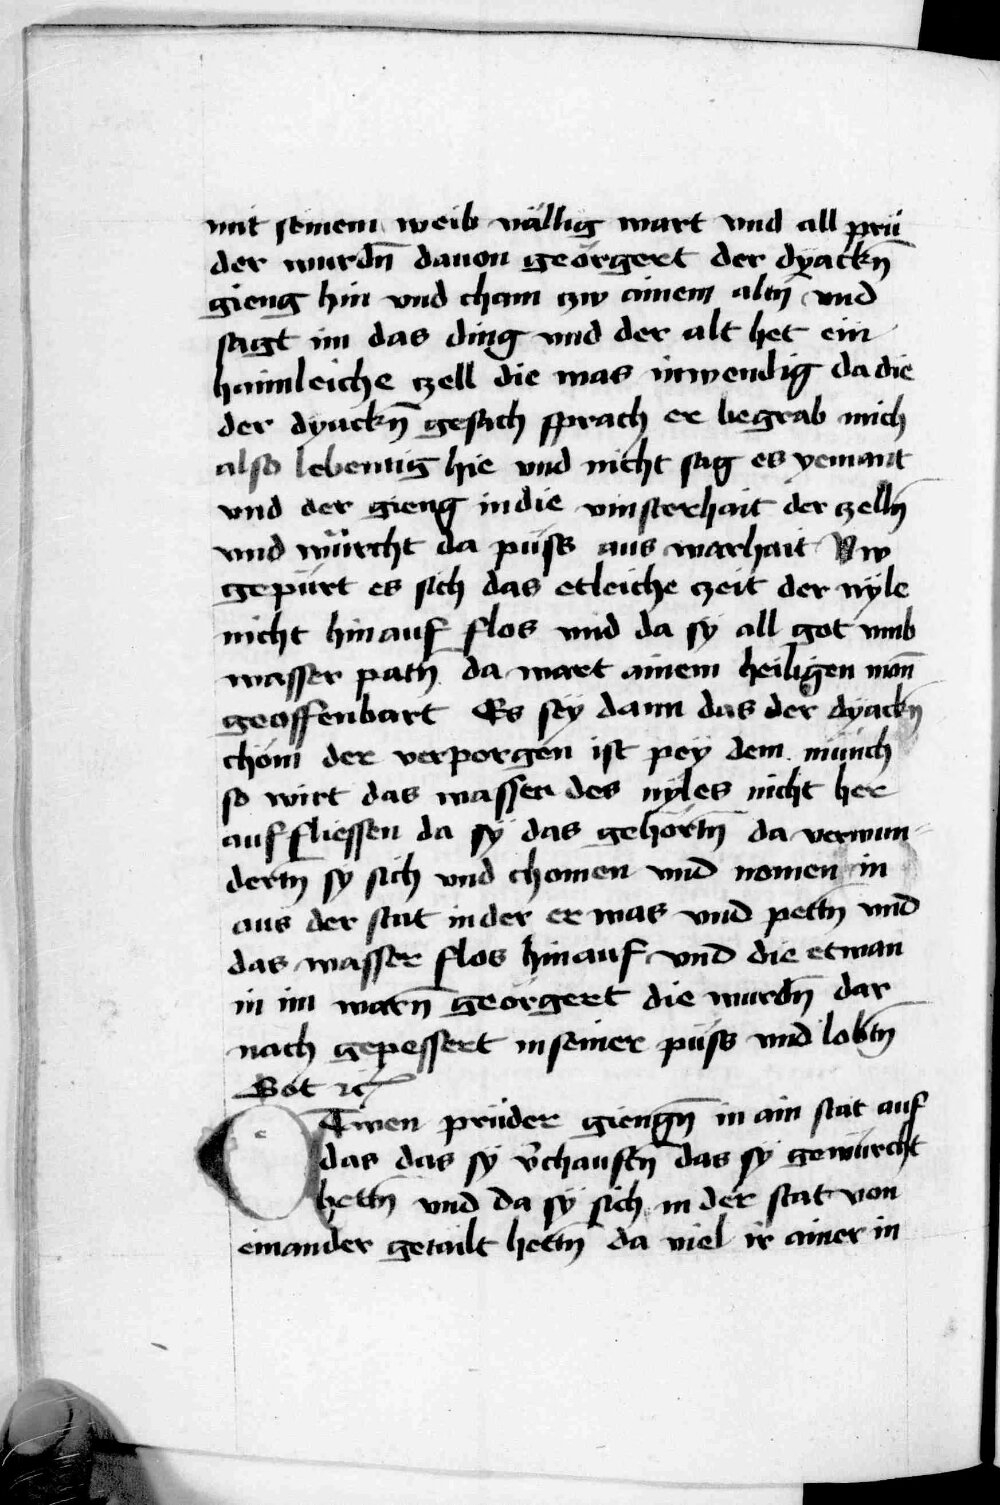 mit seinem weib vällig wart vnd all prü
der wurdn̄ dauon geörgert der dyackn̄
gieng hin vnd cham zw ainem altn̄ vnd
sagt im das ding vnd der alt het ein
haimleiche zell die was inwendig da die
der dyackn̄ gesach sprach er begrab mich
also lebentig hie vnd nicht sag es yemant
vnd der gieng in die vinsterhait der zelln̄
vnd würcht da püss aus warhait Nw
gepürt es sich das etleiche zeit der nyle
nicht hin auf flos vnd da sy all got vmb
wasser patn̄ da wart ainem heiligen man̄
geoffenbart Es sey dann das der dyackn̄
chöm der verporgen ist pey dem münch
so wirt das wasser des nyles nicht her
auf fliessen da sy das gehörtn̄ da verwun=
dertn̄ sy sich vnd chomen vnd nomen in
aus der stat in der er was vnd pettn̄ vnd
das wasser flos hin auf vnd die etwan
in im warn̄ geörgert die wurdn̄ dar
nach gepessert in seiner püss vnd lobtn̄
Got ꝛc
Twen prüder giengn̄ in ain stat auf
das das sy v̄chauftn̄ das sy gewürcht
hettn̄ vnd da sy sich in der stat von
einander getailt hettn̄ da viel ir ainer in